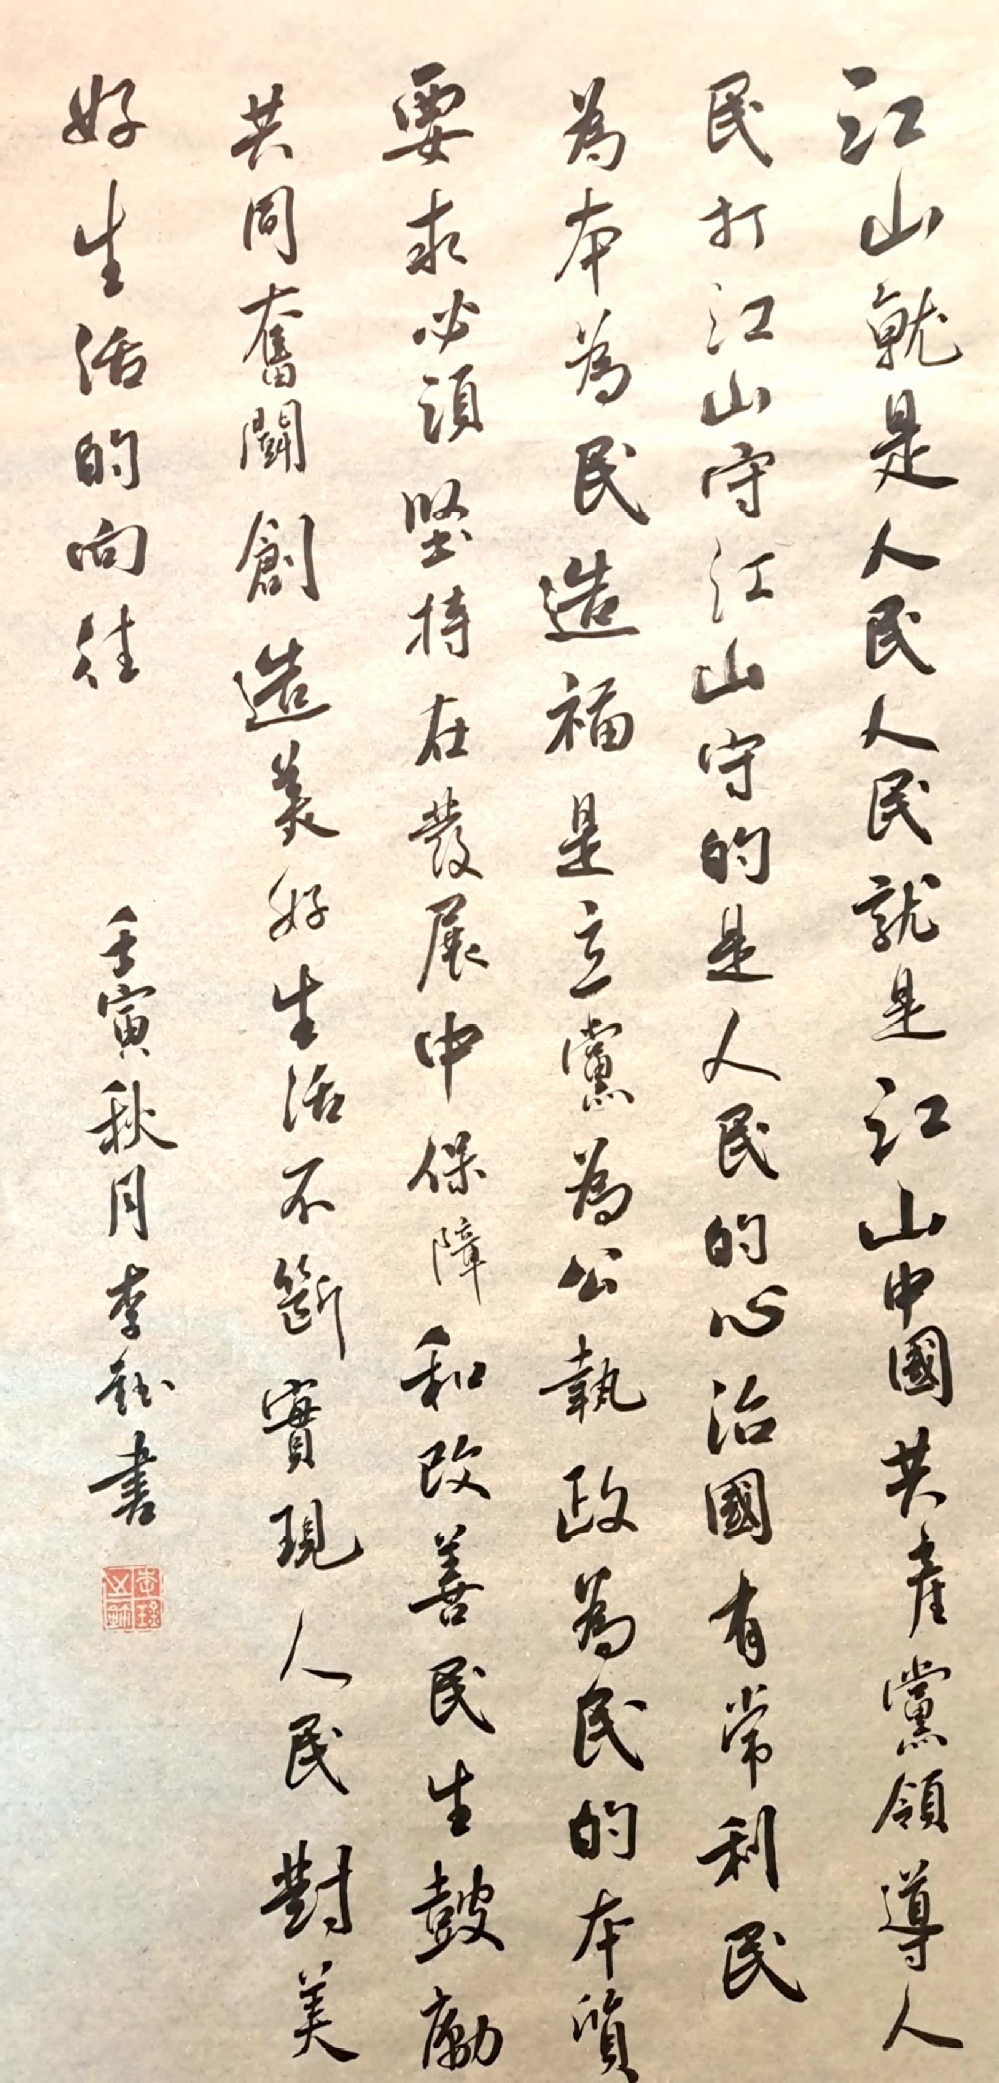 江山就是人民人民就是江山中國共產黨領導人
民打江山守江山守的是人民的心治國有常利民
為本為民造福是立黨為公執政為民的本質
要求必須堅持在發展中保障和改善民生鼓勵
共同奮鬭創造美好生活不斷實現人民對美
好生活的向往
壬寅秋月李鈺書